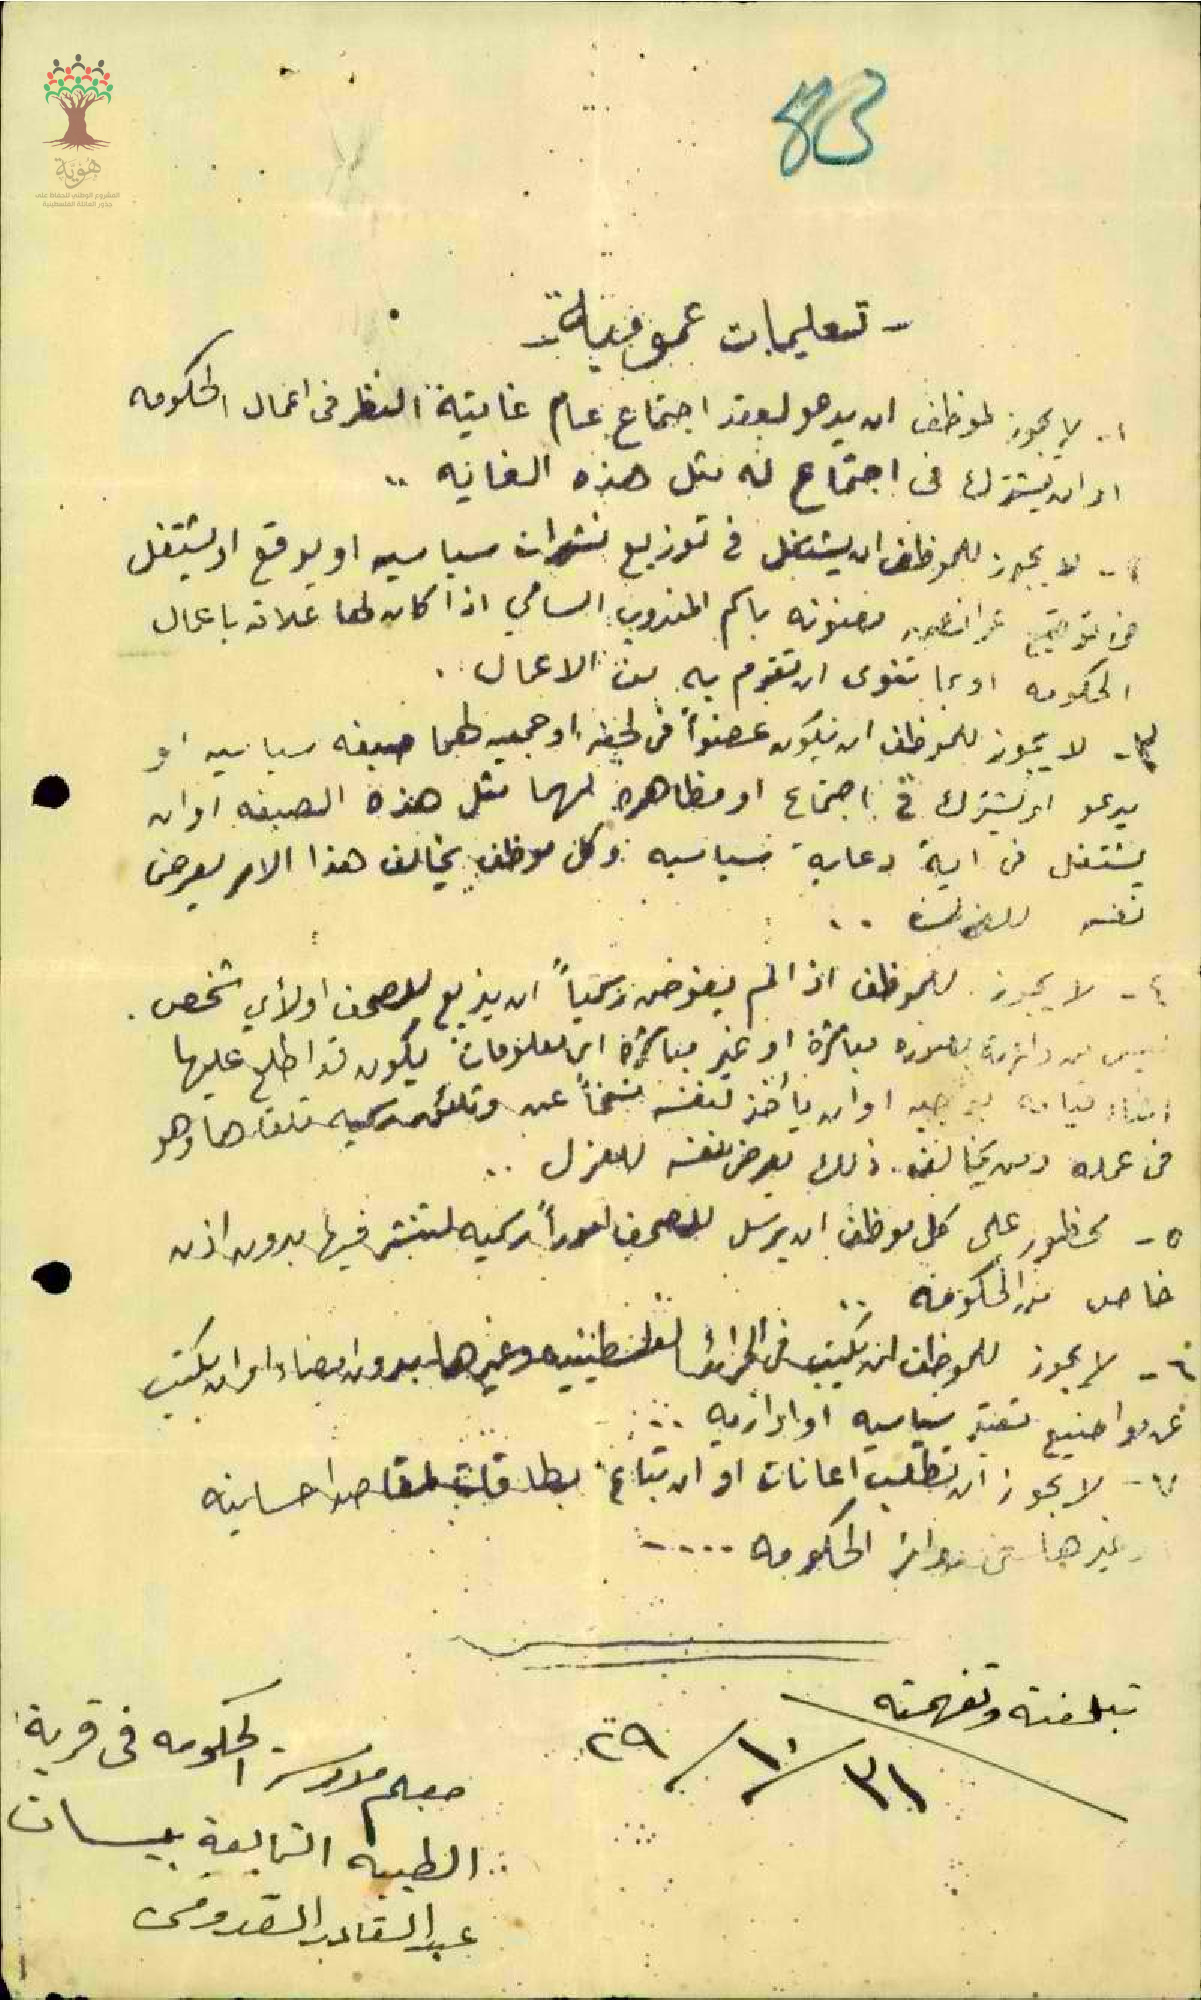 هوية
المشروع الوطني للحفاظ على
جذور العائلة الفلسطينية
83
- تعليمات عمومية -
١- لا يجوز لموظف ان يدعو لعقد اجتماع عام غايته النظر فى اعمال الحكومه
او ان يشترك فى اجتماع له مثل هذه الغايه ..
٢- لا يجوز للموظف ان يشتغل في توزيع نشرات سياسيه او يوقع او يشتغل
في توقيع عرائض معنونه باسم المندوب السامي اذا كان لها علاقه باعمال
الحكومه او بما تنوى ان تقوم به من الاعمال ..
٣- لا يجوز للموظف ان يكون عضواً فى لجنه او جمعيه لهما صبغه سياسيه او
يدعو او يشترك في اجتماع او مظاهره لهما مثل هذه الصبغه او ان
يشتغل فى اية دعاية سياسيه وكل موظف يخالف هذا الامر يعرض
نفسه ..
٤- لا يجوز للموظف اذا لم يفوض رسمياً ان يذيع للصحف او لأي شخص
ليس من دائرته بصوره مباشرة او غير مباشرة اى معلومات يكون قد اطلع عليها
اثناء قيامه بوجبه او ان يأخذ لنفسه نسخاً عن وثائق رسميه تلقاها وهو
فى عمله ومن يخالف ذلك يعرض نفسه للعزل ..
٥- محظور على كل موظف ان يرسل للصحف اموراً رسميه لتنشر فيها بدون اذن
خاص من الحكومه ..
٦- لا يجوز للموظف ان يكتب فى الجرائد الفلسطينيه وغيرها بدون امضاء او ان يكتب
عن مواضيع سياسيه او اداريه ..
٧- لا يجوز ان تطلب اعانات او ان تباع بطاقات لمقاصد احسانيه
وغيرها في دوائر الحكومه ....
تبلغته وتفهمته
٣١/١٠/٢٩
معلم مدرسة الحكومه فى قرية
الطيبه التابعة بيسان
عبد القادر القدومى